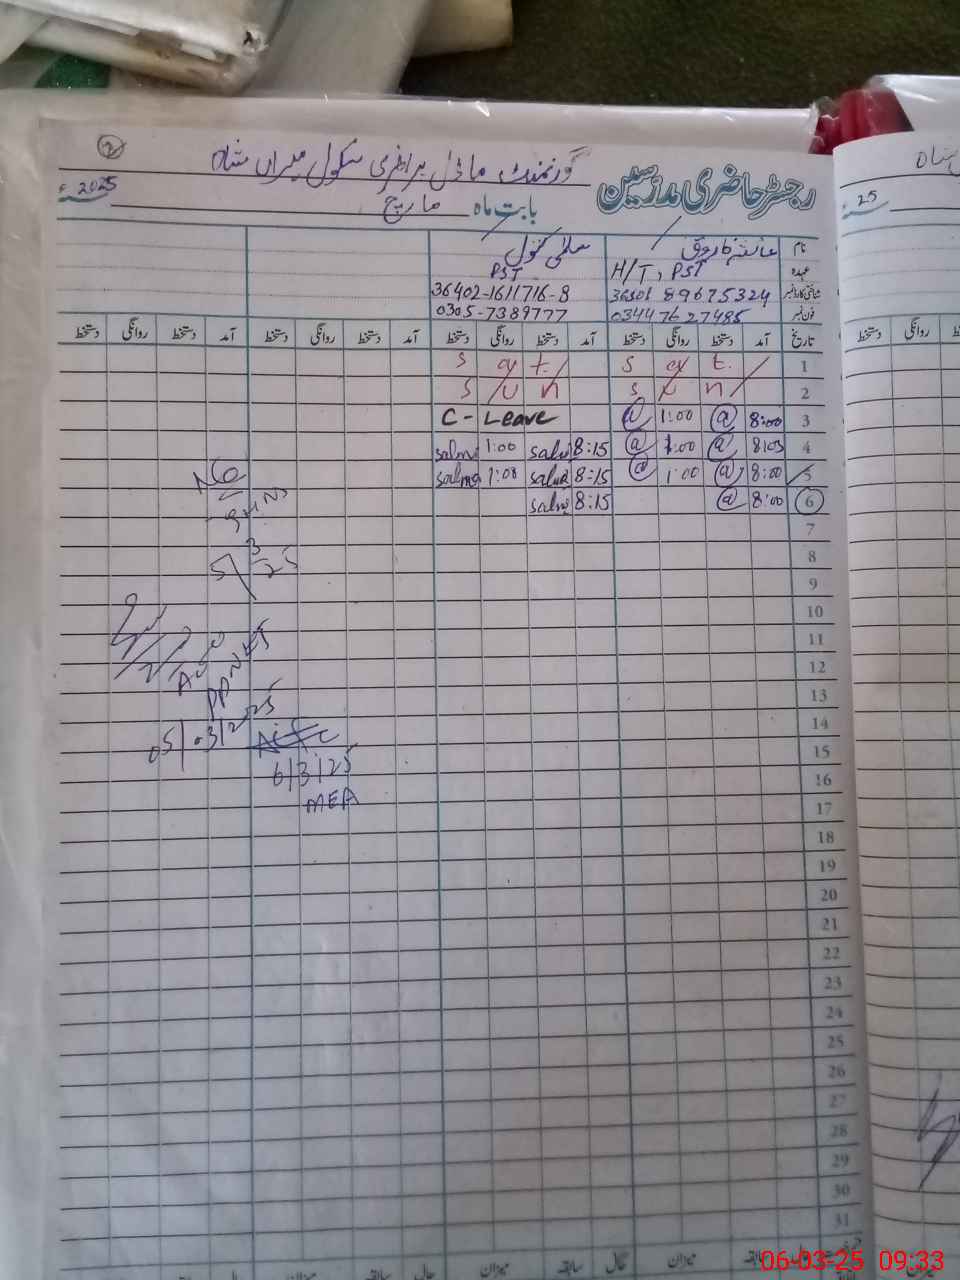 2
گورنمنٹ ماڈل پرائمری سکول میراں شاہ
رجسٹر حاضری مدرسین
بابت ماہ مارچ
2025ء
نام عائشہ فاروق سلمیٰ کنول
عہدہ H/T, PST PST
شناختی کارڈ نمبر 36402-1611716-8
فون نمبر 03447627485 0305-7389777
تاریخ آمد دستخط روانگی دستخط آمد دستخط روانگی دستخط آمد دستخط روانگی دستخط آمد دستخط روانگی دستخط
1 S a t. S a t.
2 S u n S u n
3 8:00 @ 1:00 @ C - Leave
4 8:03 @ 1:00 @ 8:15 salma 1:00 salma
5 8:00 @ 1:00 @ 8:15 salma 1:00 salma
6 8:00 @ 8:15 salma
7
8
9
10
11
12
13
14
15
16
17
18
19
20
21
22
23
24
25
26
27
28
29
30
31
5/3/25
05/03/2025
6/3/25
MEA
میزان سابقہ حال میزان سابقہ حال میزان
شاہ
25
روانگی دستخط
06-03-25 09:33